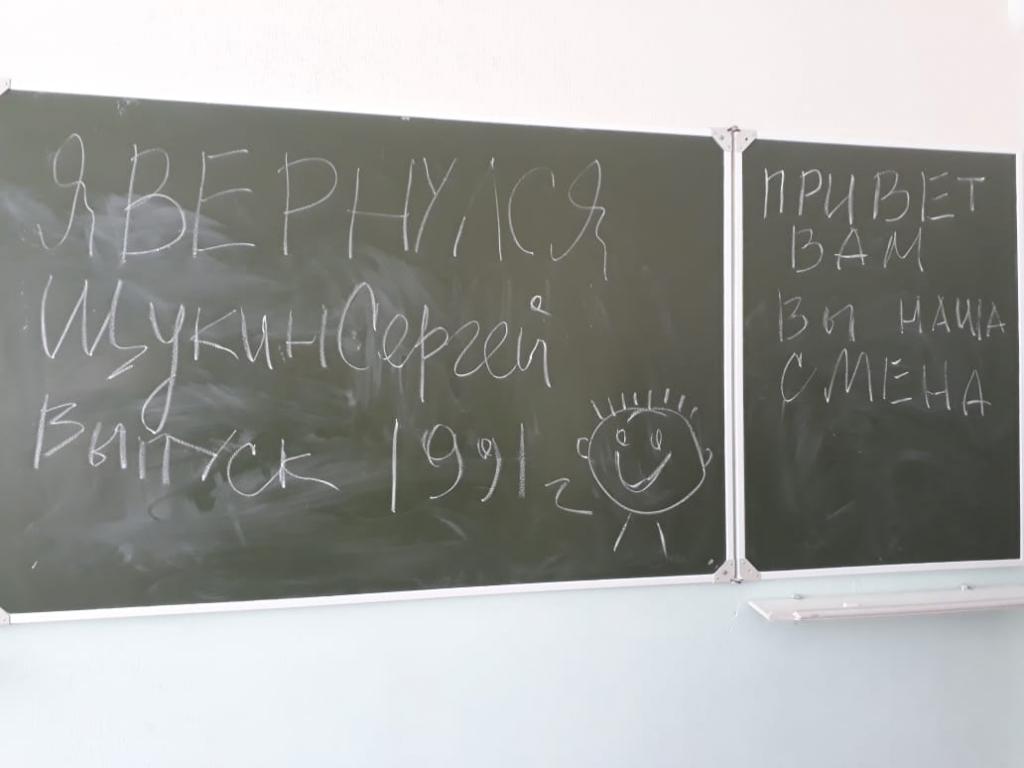 Я ВЕРНУЛСЯ
Щукин Сергей
Выпуск 1991 г
ПРИВЕТ
ВАМ
ВЫ НАША
СМЕНА